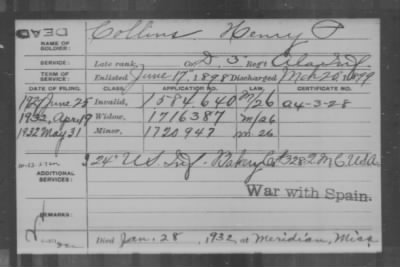 DEAD
NAME OF SOLDIER: Collins Henry P
SERVICE: Late rank, Co. D, 3, Reg't Ala. Inf.
TERM OF SERVICE: Enlisted June 17" 1898 Discharged Mch 20, 1899
DATE OF FILING. CLASS. APPLICATION NO. LAW. CERTIFICATE NO.
1927 June 25 Invalid, 1584640 m/26 A4-3-28
1932, April 9 Widow, 1716387 m/26
1932 May 31 Minor, 1720947 m. 26
ADDITIONAL SERVICES: 24" U.S. Inf. Bakery Co 328 Q M C USA
War with Spain.
REMARKS:
Died Jan. 28, 1932, at Meridian, Miss